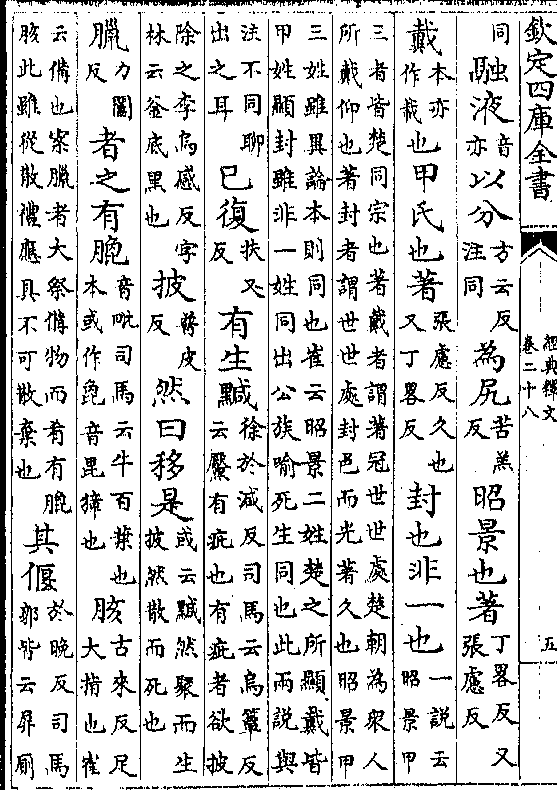 欽定四庫全書
經典釋文
卷二十八
五
同融液音亦以分方云反注同為尻苦羔反昭景也著丁畧反又張慮反
戴本亦作載也甲氏也著張慮反久也又丁畧反封也非一也一說云昭景甲
三者皆楚同宗也著戴者謂著冠世世處楚朝為衆人
所戴仰也著封者謂世世處封邑而光著久也昭景甲
三姓雖異論本則同也崔云昭景二姓楚之所顯戴皆
甲姓顯封雖非一姓同出公族喻死生同也此兩說與
注不同聊出之耳已復扶又反有生黬徐於減反司馬云烏簟反云黶有疵也有疵者欲披
除之李烏感反字林云釜底黑也披普皮反然曰移是或云黬然聚而生披然散而死也
臘力闔反者之有膍音毗司馬云牛百葉也本或作㲋音毘獐也胲古來反足大指也崔
云備也案臘者大祭備物而肴有臘胲此雖從散禮應具不可散棄也其偃於晚反司馬郭皆云屏厠